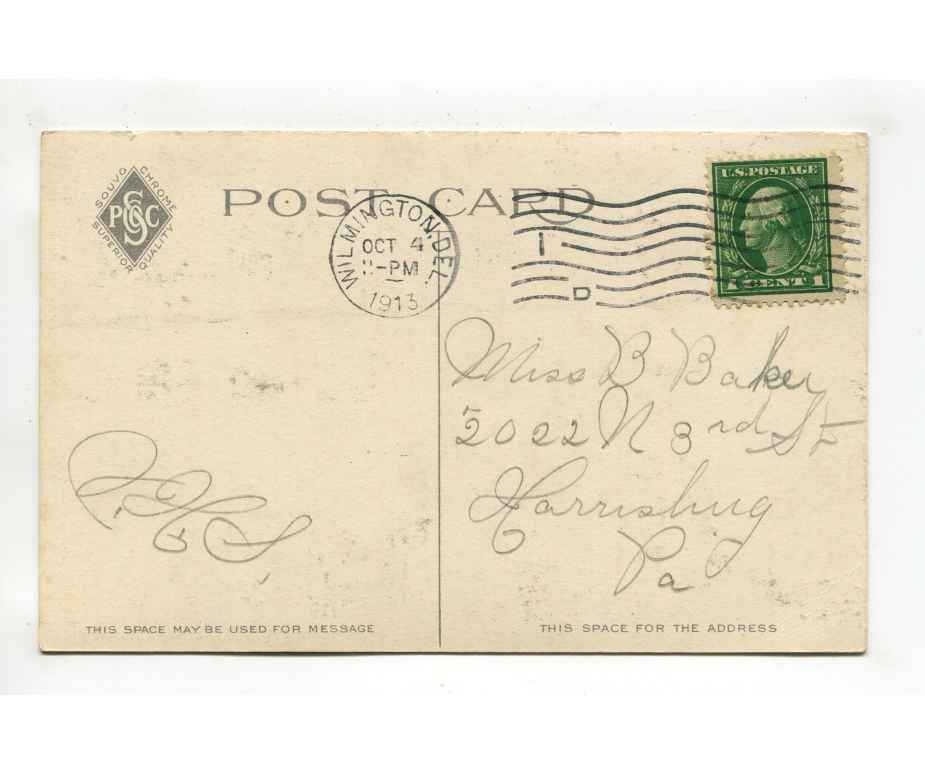 SOUVO CHROME
PSC&Co
SUPERIOR QUALITY
POST CARD
WILMINGTON, DEL.
OCT 4
-PM
1913
1
D
U.S. POSTAGE
1 CENT 1
Miss B Baker
2022 N 3rd St
Harrisbug
Pa
THIS SPACE MAY BE USED FOR MESSAGE
THIS SPACE FOR THE ADDRESS